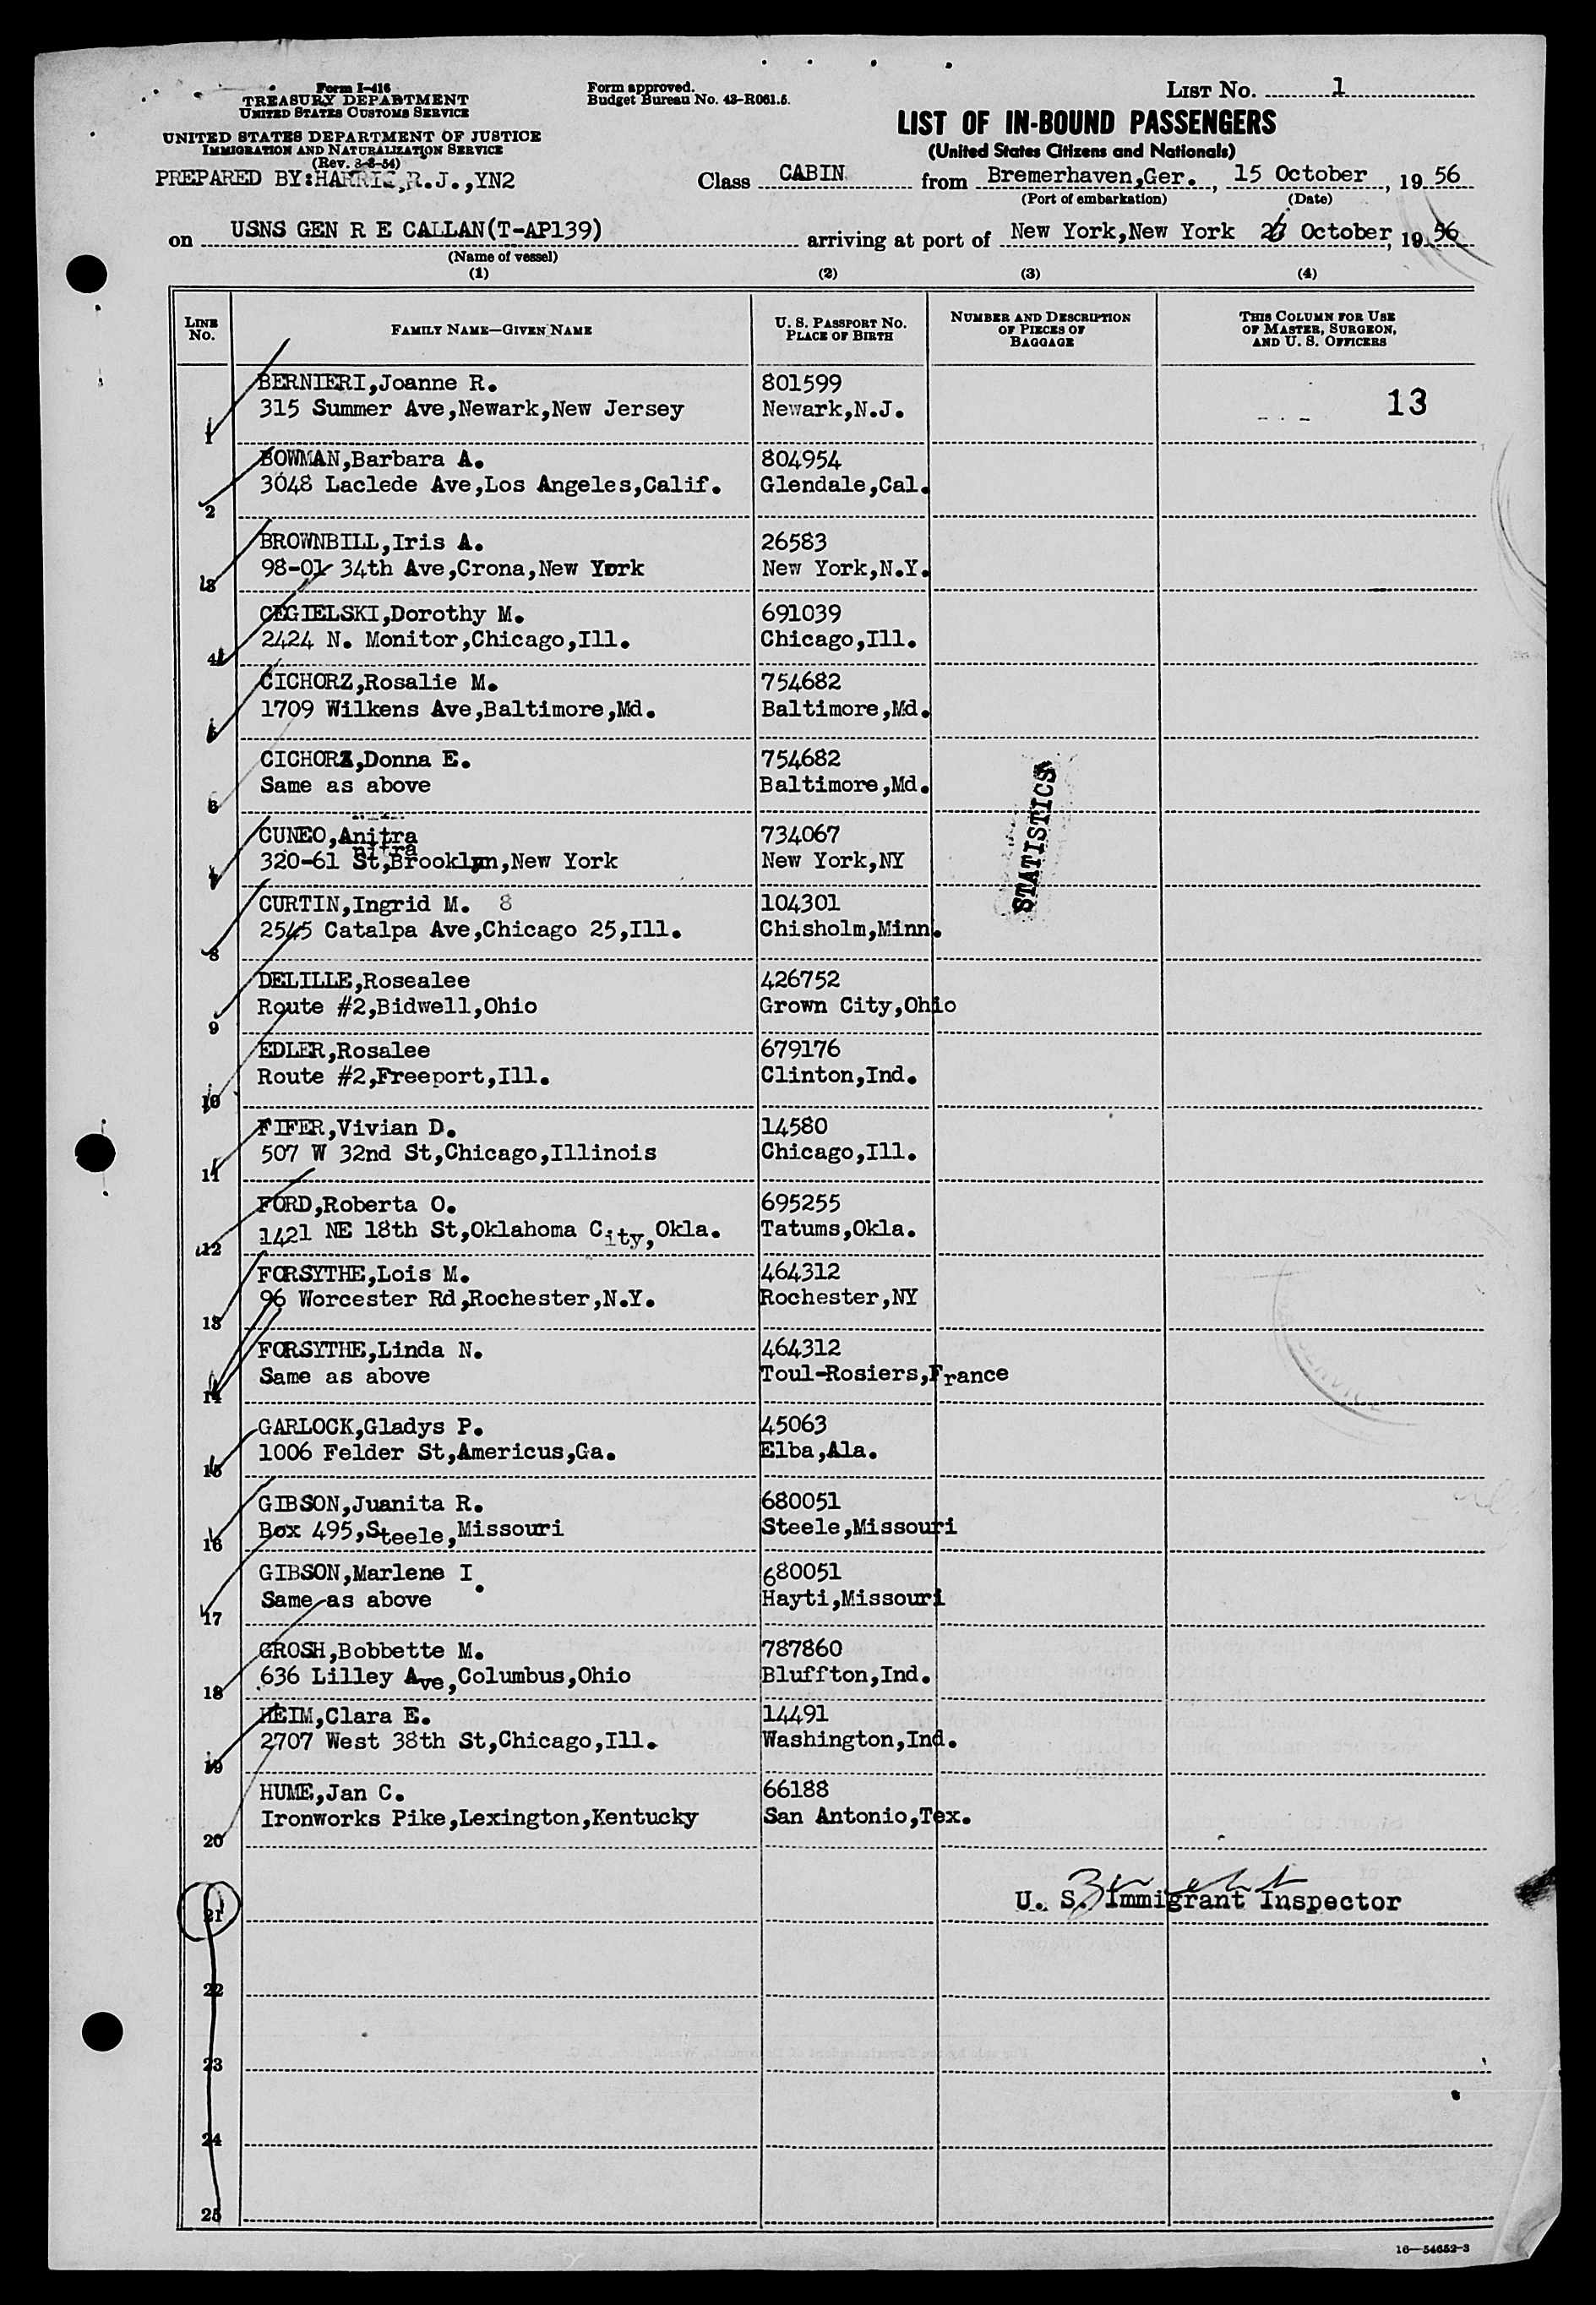 Form I-416
TREASURY DEPARTMENT
UNITED STATES CUSTOMS SERVICE
UNITED STATES DEPARTMENT OF JUSTICE
IMMIGRATION AND NATURALIZATION SERVICE
(Rev. 3-8-54)
PREPARED BY:HARRIS,R.J.,YN2
Form approved.
Budget Bureau No. 43-R061.5.
LIST NO. 1
LIST OF IN-BOUND PASSENGERS
(United States Citizens and Nationals)
Class CABIN from Bremerhaven,Ger., 15 October, 19 56
(Port of embarkation) (Date)
on USNS GEN R E CALLAN(T-AP139) arriving at port of New York,New York 26 October, 19 56
(Name of vessel)
(1) (2) (3) (4)
LINE NO. FAMILY NAME—GIVEN NAME U. S. PASSPORT NO. PLACE OF BIRTH NUMBER AND DESCRIPTION OF PIECES OF BAGGAGE THIS COLUMN FOR USE OF MASTER, SURGEON, AND U. S. OFFICERS
BERNIERI,Joanne R. 801599
315 Summer Ave,Newark,New Jersey Newark,N.J. 13
1
BOWMAN,Barbara A. 804954
3048 Laclede Ave,Los Angeles,Calif. Glendale,Cal.
2
BROWNBILL,Iris A. 26583
98-01 34th Ave,Crona,New York New York,N.Y.
3
CEGIELSKI,Dorothy M. 691039
2424 N. Monitor,Chicago,Ill. Chicago,Ill.
4
CICHORZ,Rosalie M. 754682
1709 Wilkens Ave,Baltimore,Md. Baltimore,Md.
5
CICHORZ,Donna E. 754682
Same as above Baltimore,Md.
6
STATISTICS
CUNEO,Anitra 734067
nitra
320-61 St,Brooklyn,New York New York,NY
7
CURTIN,Ingrid M. 8 104301
2545 Catalpa Ave,Chicago 25,Ill. Chisholm,Minn.
8
DELILLE,Rosealee 426752
Route #2,Bidwell,Ohio Grown City,Ohio
9
EDLER,Rosalee 679176
Route #2,Freeport,Ill. Clinton,Ind.
10
FIFER,Vivian D. 14580
507 W 32nd St,Chicago,Illinois Chicago,Ill.
11
FORD,Roberta O. 695255
1421 NE 18th St,Oklahoma City,Okla. Tatums,Okla.
12
FORSYTHE,Lois M. 464312
96 Worcester Rd,Rochester,N.Y. Rochester,NY
13
FORSYTHE,Linda N. 464312
Same as above Toul-Rosiers,France
14
GARLOCK,Gladys P. 45063
1006 Felder St,Americus,Ga. Elba,Ala.
15
GIBSON,Juanita R. 680051
Box 495,Steele,Missouri Steele,Missouri
16
GIBSON,Marlene I. 680051
Same as above Hayti,Missouri
17
GROSH,Bobbette M. 787860
636 Lilley Ave,Columbus,Ohio Bluffton,Ind.
18
HEIM,Clara E. 14491
2707 West 38th St,Chicago,Ill. Washington,Ind.
19
HUME,Jan C. 66188
Ironworks Pike,Lexington,Kentucky San Antonio,Tex.
20
U. S. Immigrant Inspector
21
22
23
24
25
16—54652-3